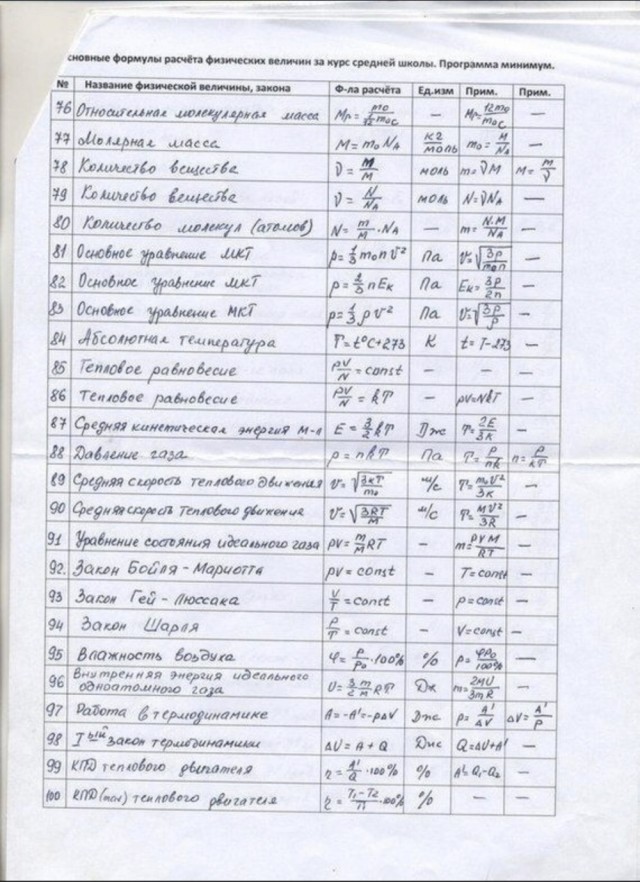 сновные формулы расчёта физических величин за курс средней школы. Программа минимум.
№ Название физической величины, закона Ф-ла расчёта Ед.изм Прим. Прим.
76 Относительная молекулярная масса Mr = m0 / 1/12 m0C — Mr = 12m0/m0C
77 Молярная масса M = m0 NA кг/моль m0 = M/NA
78 Количество вещества ν = m/M моль m = νM M = m/ν
79 Количество вещества ν = N/NA моль N = νNA —
80 Количество молекул (атомов) N = m/M · NA — m = N·M/NA —
81 Основное уравнение МКТ p = 1/3 m0 n v² Па v = √(3p/m0n)
82 Основное уравнение МКТ p = 2/3 n Eк Па Eк = 3p/2n —
83 Основное уравнение МКТ p = 1/3 ρ v² Па v = √(3p/ρ) —
84 Абсолютная температура T = t°C + 273 К t = T - 273 —
85 Тепловое равновесие pV/N = const — — —
86 Тепловое равновесие pV/N = kT — pV = NkT —
87 Средняя кинетическая энергия м-л E = 3/2 kT Дж T = 2E/3k —
88 Давление газа p = nkT Па T = p/nk n = p/kT
89 Средняя скорость теплового движения v = √(3kT/m0) м/с T = m0v²/3k —
90 Средняя скорость теплового движения v = √(3RT/M) м/с T = Mv²/3R —
91 Уравнение состояния идеального газа pV = m/M RT — m = pVM/RT —
92. Закон Бойля - Мариотта pV = const — T = const —
93 Закон Гей - Люссака V/T = const — p = const —
94 Закон Шарля p/T = const — V = const —
95 Влажность воздуха φ = p/p0 · 100% % p = φp0/100% —
96 Внутренняя энергия идеального
одноатомного газа U = 3/2 m/M RT Дж m = 2MU/3mR —
97 Работа в термодинамике A = -A' = -pΔV Дж p = A'/ΔV ΔV = A'/p
98 I ый закон термодинамики ΔU = A + Q Дж Q = ΔU + A' —
99 КПД теплового двигателя η = A'/Q · 100% % A' = Q1 - Q2 —
100 КПД (max) теплового двигателя η = T1 - T2/T1 · 100% % — —